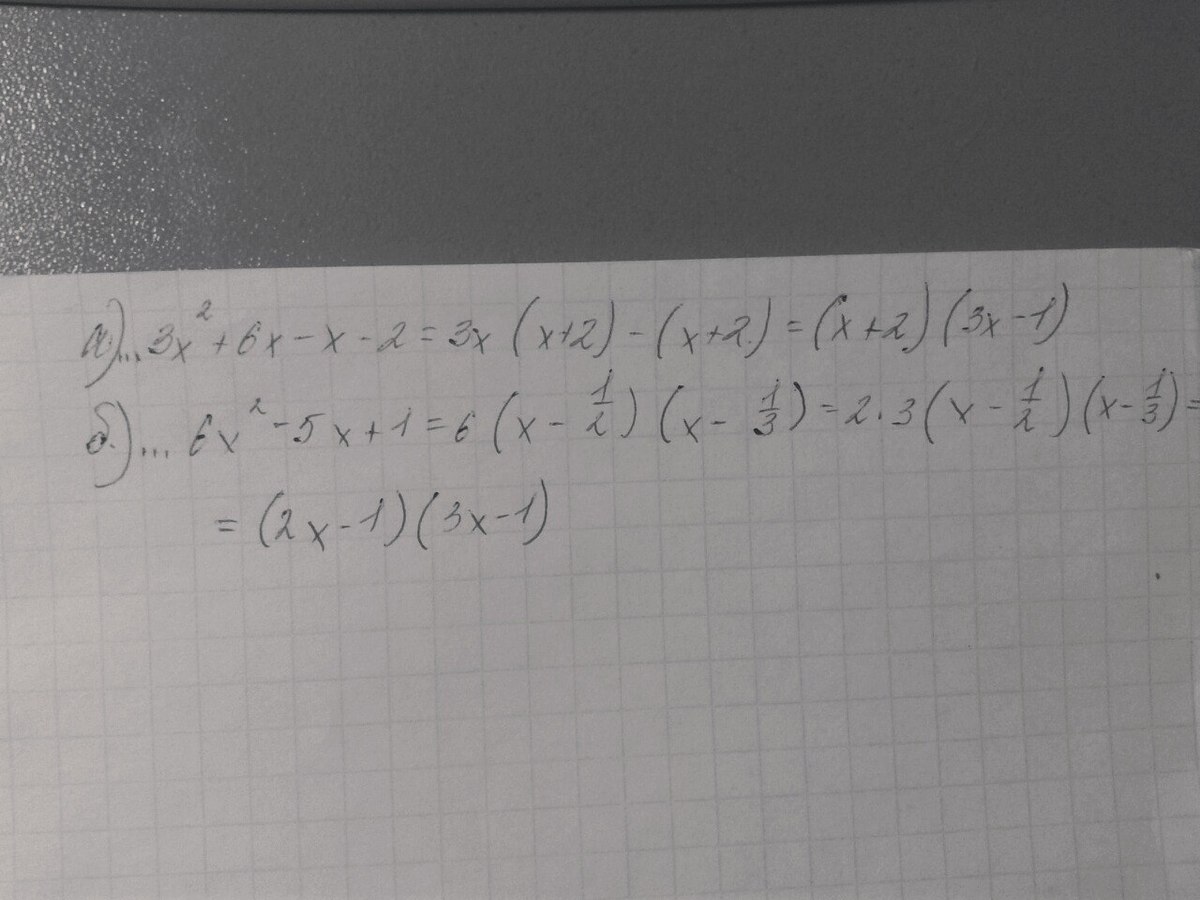 а)... 3x² + 6x - x - 2 = 3x (x+2) - (x+2) = (x+2) (3x-1)
б)... 6x² - 5x + 1 = 6 (x - 1/2) (x - 1/3) = 2·3 (x - 1/2) (x - 1/3) =
= (2x-1) (3x-1)